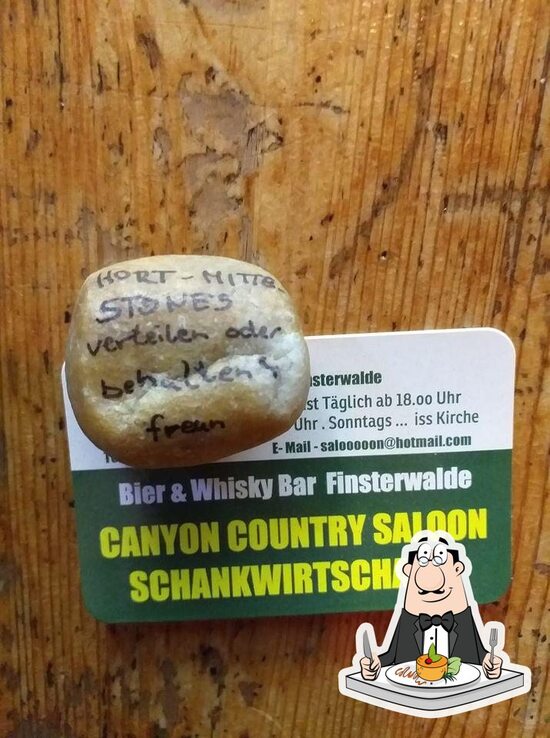 HORT-MITTE
STONES
verteilen oder
behalten &
freun
nsterwalde
st Täglich ab 18.oo Uhr
Uhr . Sonntags ... iss Kirche
E- Mail - salooooon@hotmail.com
Bier & Whisky Bar Finsterwalde
CANYON COUNTRY SALOON
SCHANKWIRTSCHA